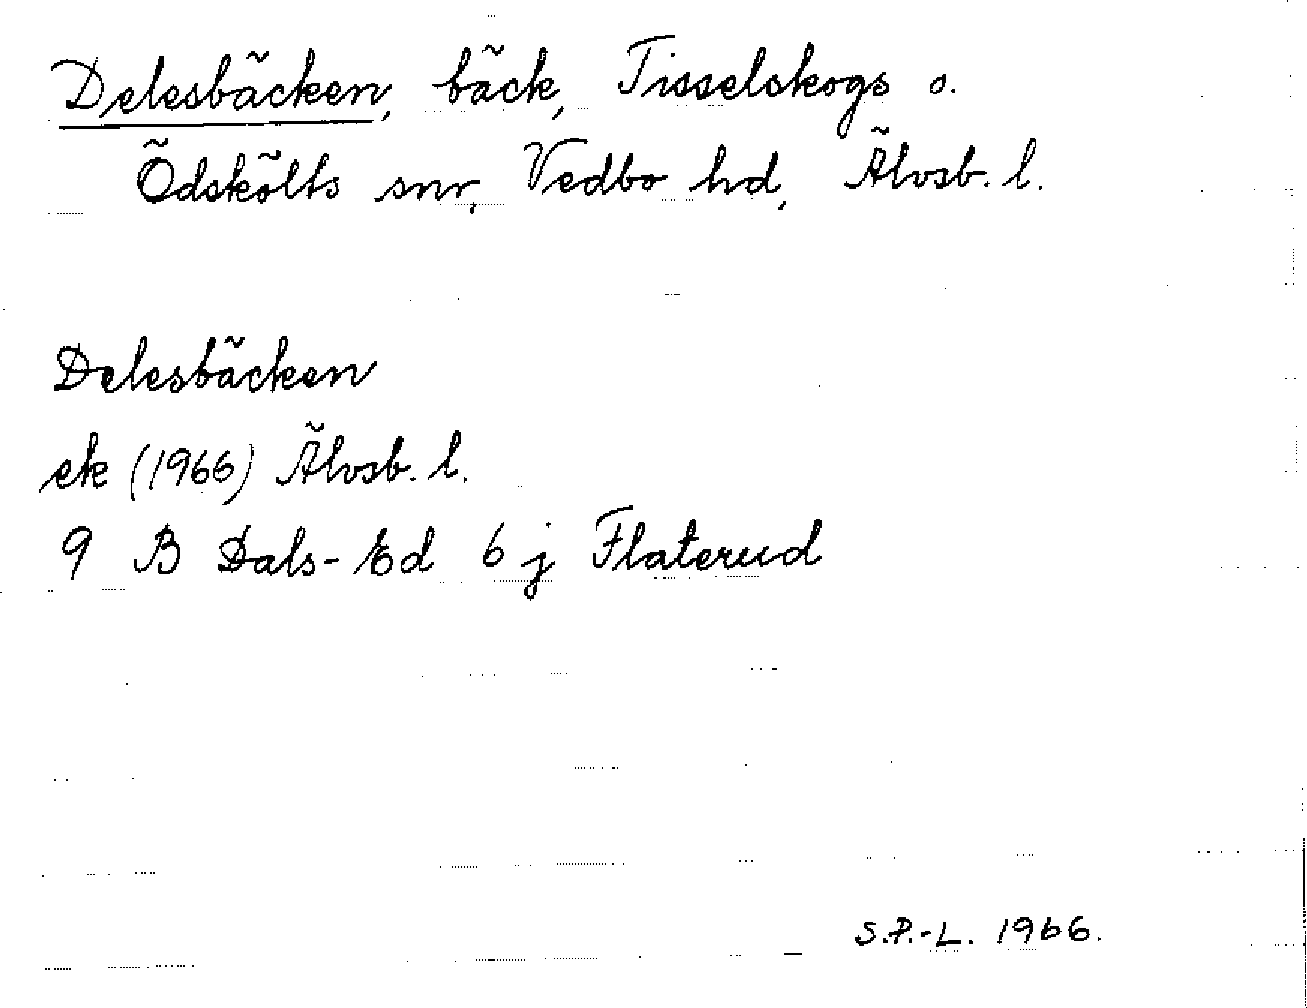 Delesbäcken, bäck, Tisselskogs o.
Ödskölts snr, Vedbo hd, Älvsb. l.
Delesbäcken
ek (1966) Älvsb. l.
9 B Dals-Ed 6 j Flaterud
S.P.-L. 1966.